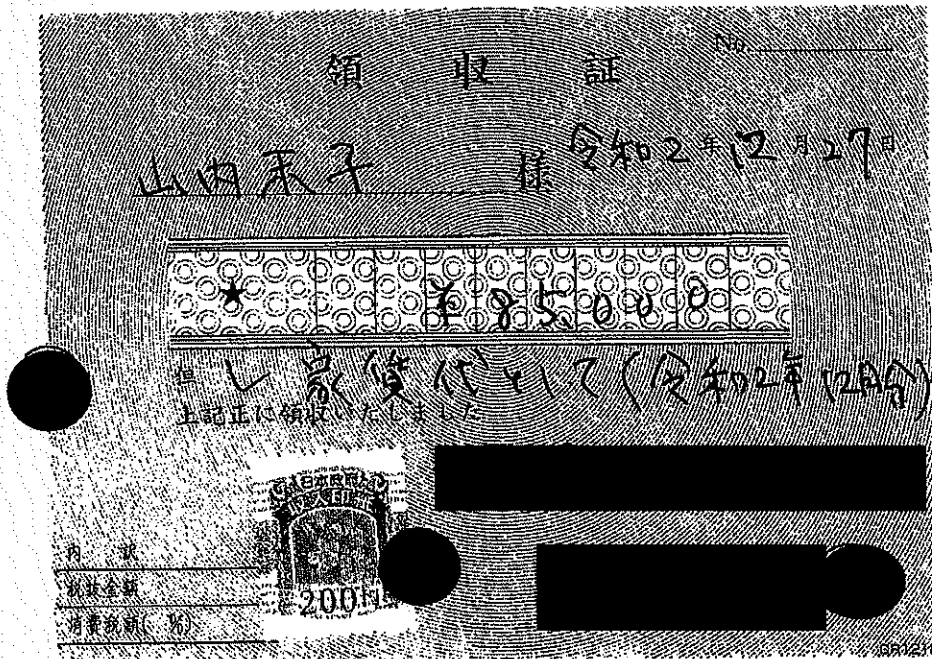 No.
領収証
山内禾子 様 令和2年12月27日
★ ¥85,000
但し家賃代として(令和2年12月分)
上記正に領収いたしました
日本政府
収入印紙
200円
内訳
税抜金額
消費税額( %)
GR121